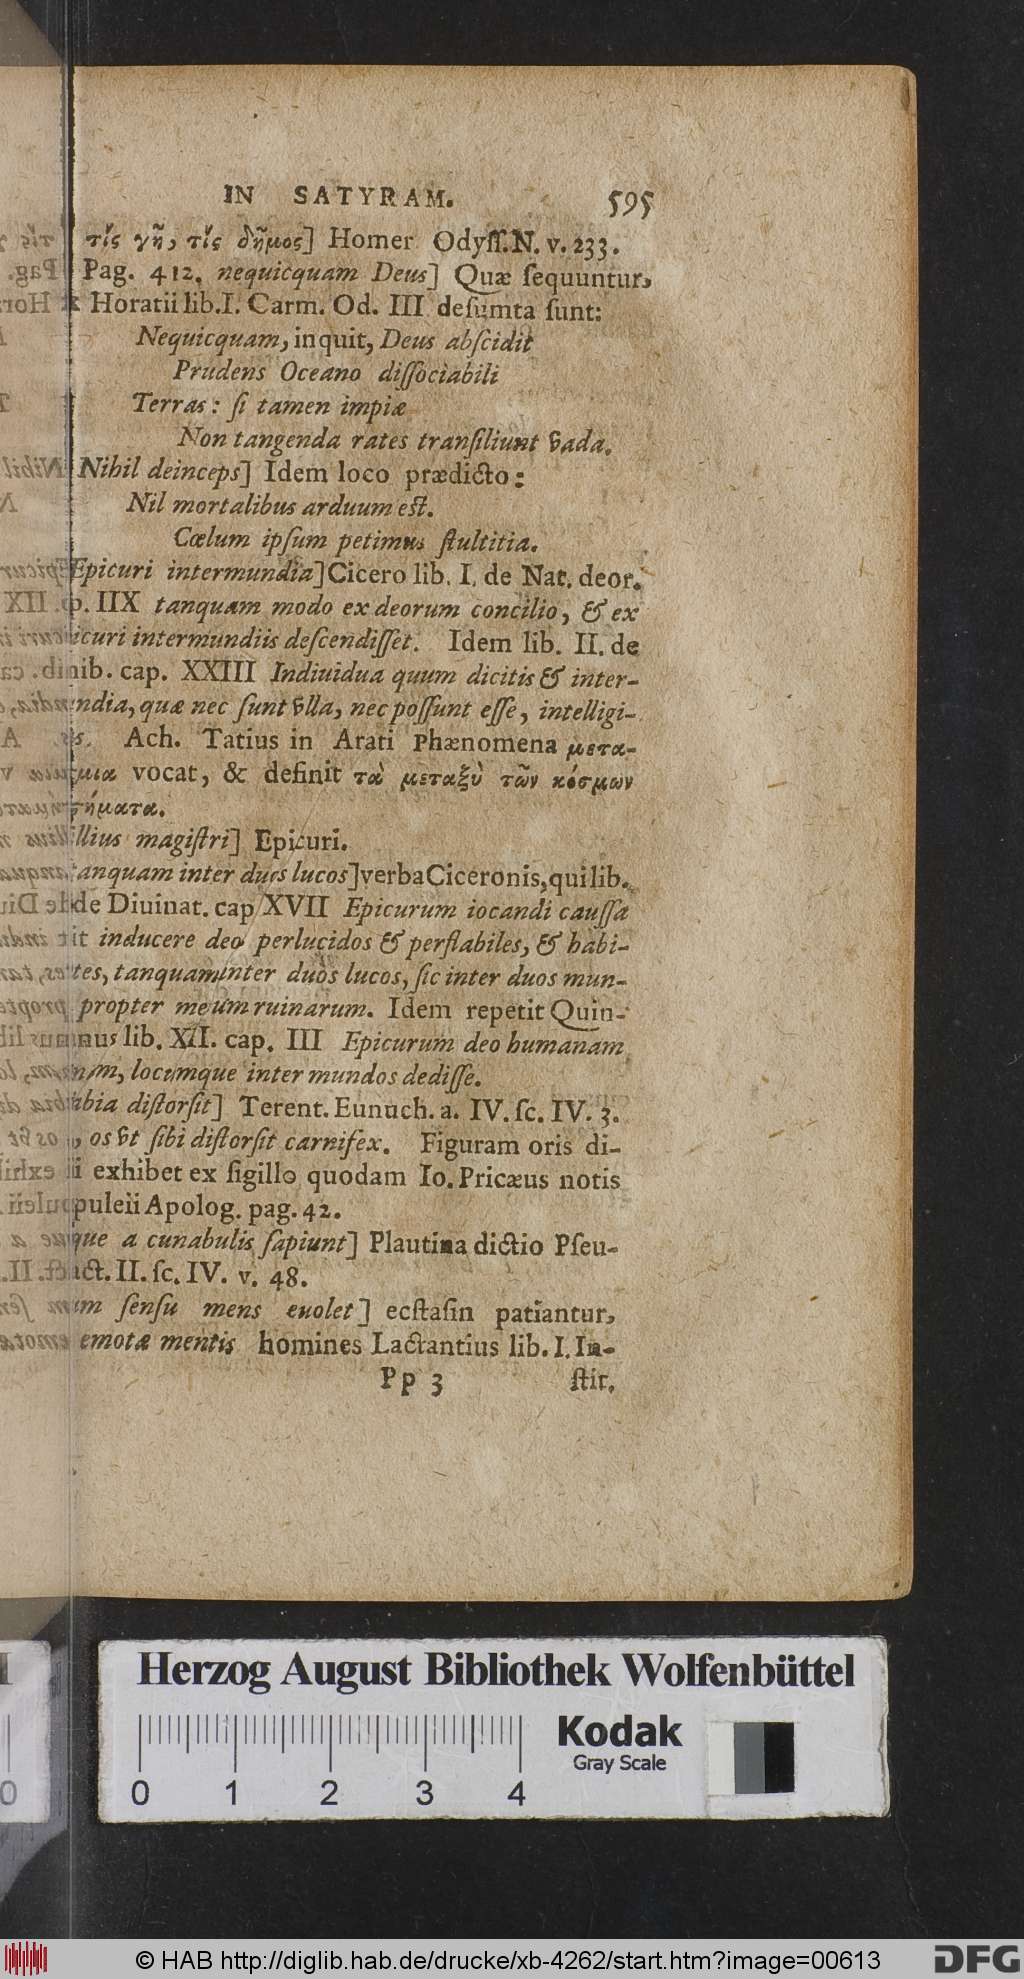 IN SATYRAM. 595
τίς γῆ, τίς δῆμος] Homer Odyſſ. N. v. 233.
Pag. 412. nequicquam Deus] Quæ ſequuntur,
Horatii lib. I. Carm. Od. III deſumta ſunt:
Nequicquam, inquit, Deus abſcidit
Prudens Oceano diſſociabili
Terras: ſi tamen impiæ
Non tangenda rates tranſiliunt vada.
Nihil deinceps] Idem loco prædicto:
Nil mortalibus arduum eſt.
Cœlum ipſum petimus ſtultitia.
Epicuri intermundia] Cicero lib. I. de Nat. deor.
p. IIX tanquam modo ex deorum concilio, & ex
icuri intermundiis deſcendiſſet. Idem lib. II. de
nib. cap. XXIII Indiuidua quum dicitis & inter-
ndia, quæ nec ſunt vlla, nec poſſunt eſſe, intelligi-
Ach. Tatius in Arati Phænomena μετα-
μια vocat, & definit τὰ μεταξὺ τῶν κόσμων
τήματα.
llius magiſtri] Epicuri.
tanquam inter duos lucos] verba Ciceronis, qui lib.
de Diuinat. cap XVII Epicurum iocandi cauſſa
it inducere deo perlucidos & perflabiles, & habi-
tes, tanquam inter duos lucos, ſic inter duos mun-
propter metum ruinarum. Idem repetit Quin-
nus lib. XII. cap. III Epicurum deo humanam
m, locumque inter mundos dediſſe.
bia diſtorſit] Terent. Eunuch. a. IV. ſc. IV. 3.
, os vt ſibi diſtorſit carnifex. Figuram oris di-
i exhibet ex ſigillo quodam Io. Pricæus notis
puleii Apolog. pag. 42.
que a cunabulis ſapiunt] Plautina dictio Pſeu-
act. II. ſc. IV. v. 48.
m ſenſu mens euolet] ecſtaſin patiantur,
emotæ mentis homines Lactantius lib. I. In-
Pp 3 ſtit.
Herzog August Bibliothek Wolfenbüttel
Kodak
Gray Scale
0 1 2 3 4
© HAB http://diglib.hab.de/drucke/xb-4262/start.htm?image=00613
DFG